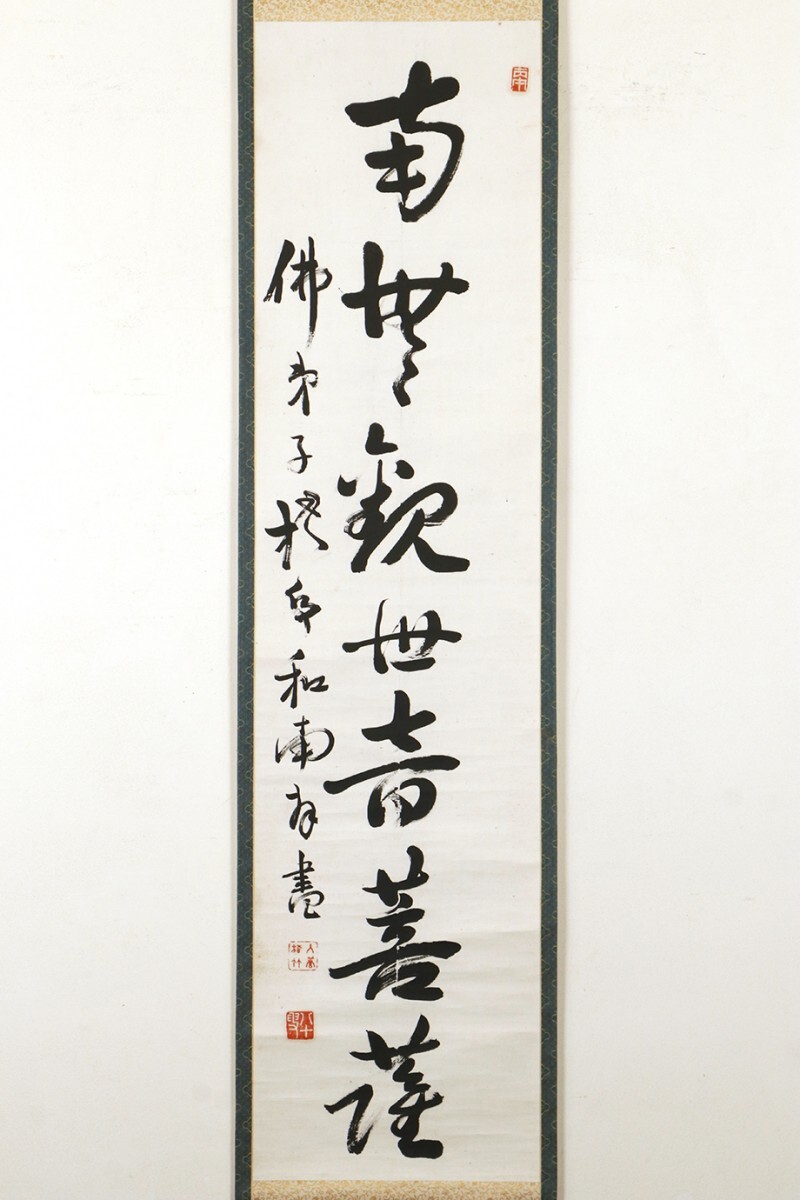 南無觀世音菩薩
佛弟子 和南 書
八十